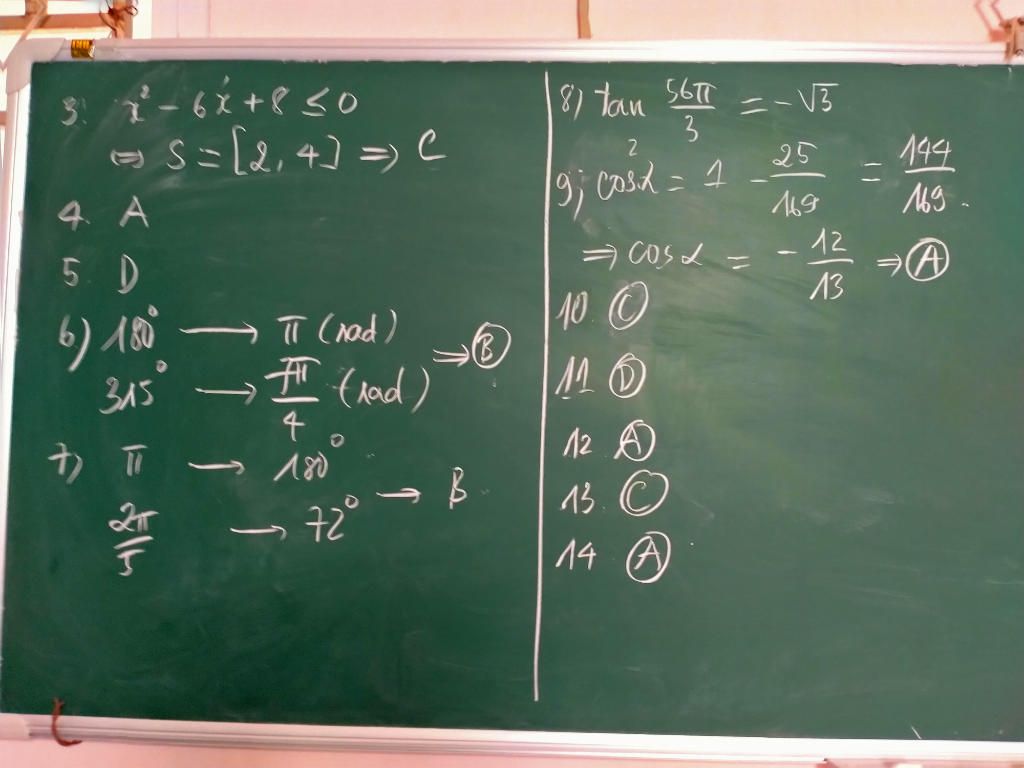 3. x² - 6x + 8 ≤ 0
⇔ S = [2, 4] ⇒ C
4. A
5. D
6) 180° → π (rad)
315° → 7π/4 (rad) ⇒ B
7) π → 180°
2π/5 → 72° → B
8) tan 56π/3 = -√3
9) cos²α = 1 - 25/169 = 144/169.
⇒ cos α = - 12/13 ⇒ A
10. C
11 D
12. A
13. C
14 A